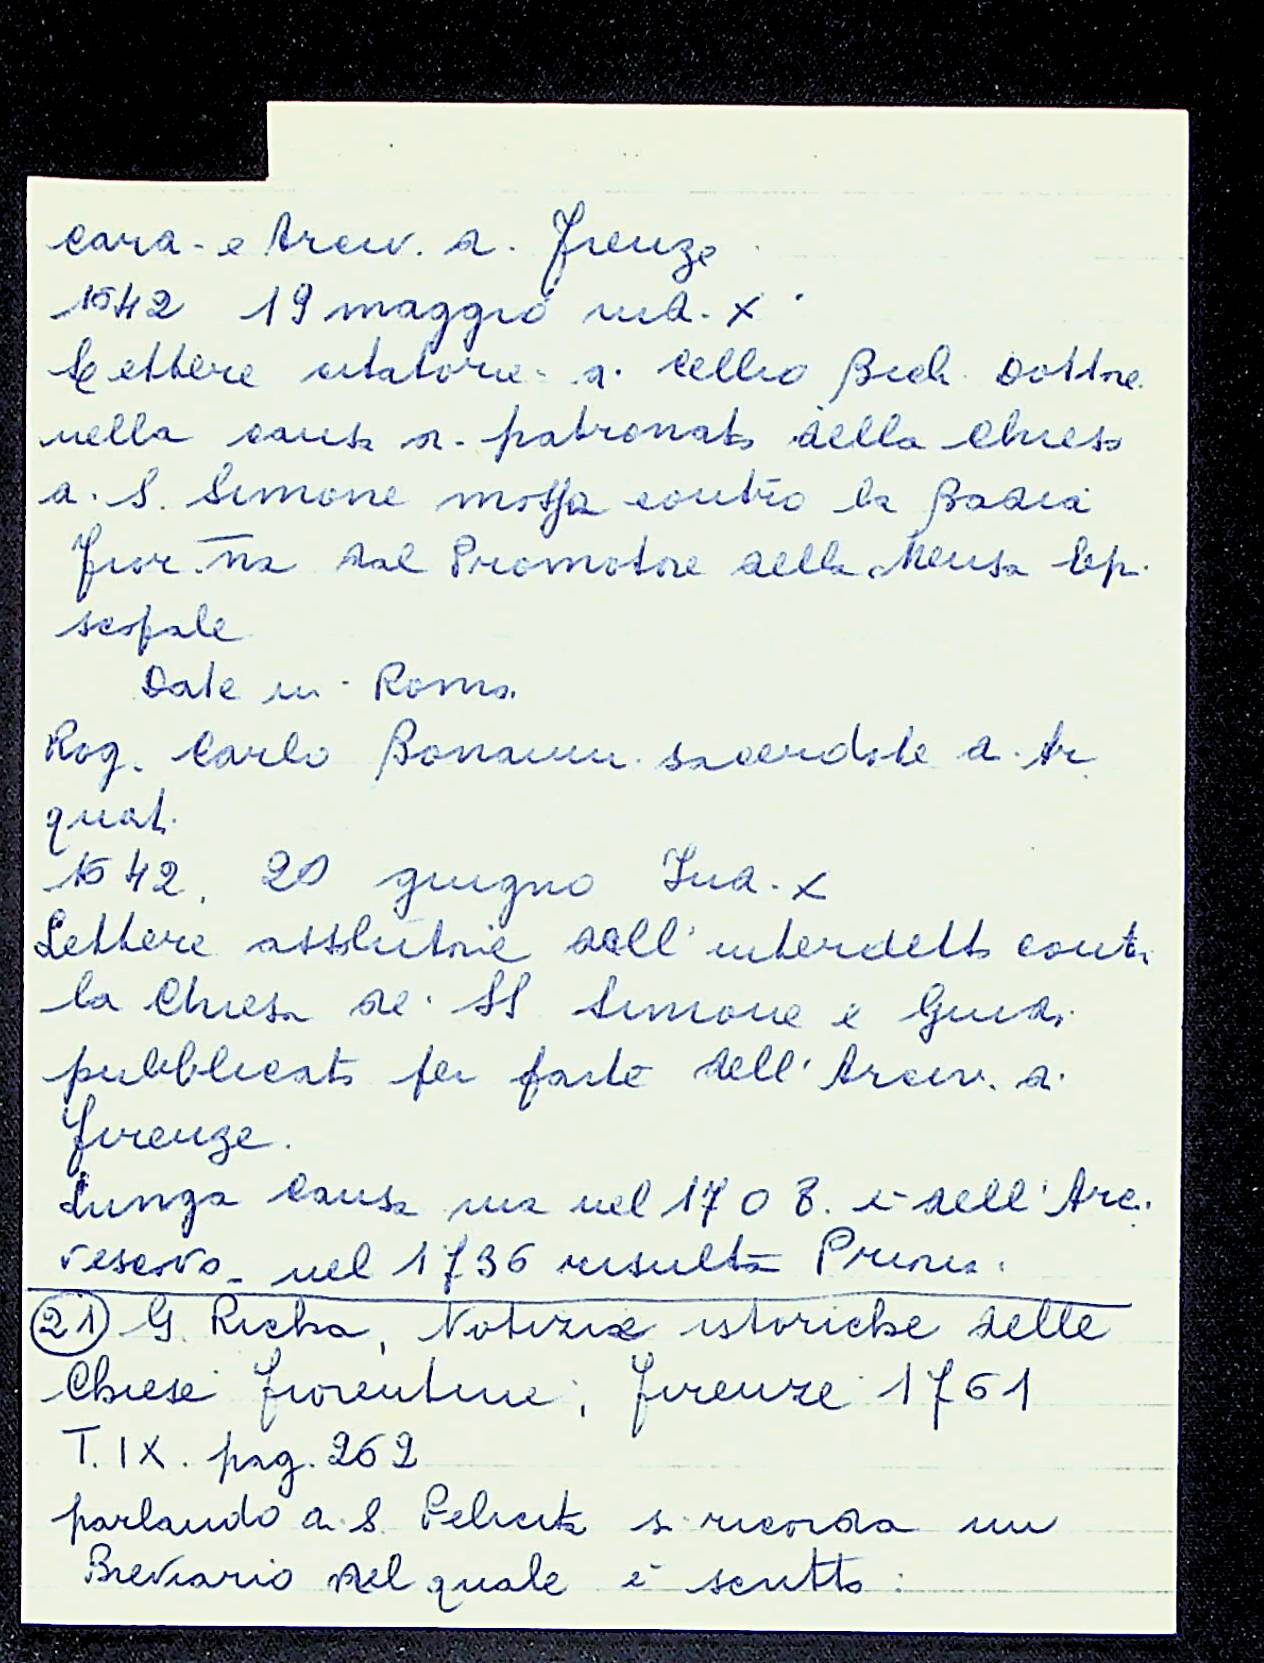 cara - e Arciv. di Firenze
1542 19 maggio ind. X
Lettere citatorie di Lellio Bich. Dottore
nella causa di patronato della Chiesa
di S. Simone mossa contro la Badia
Fior.na dal Promotore della Mensa Epi
scopale
Date in Roma
Rog. Carlo Bonanni sacerdote di Ar
quat.
1542. 20 giugno Ind. X
Lettere assolutorie dall'interdetto contro
la Chiesa de' SS Simone e Giuda
pubblicato per parte dell'Arciv. di
Firenze.
Lunga causa ma nel 1708. è dell'Arci
vescovo - nel 1736 risulta
(21) G. Richa, Notizie istoriche delle
Chiese fiorentine, Firenze 1761
T. IX. pag. 262
parlando di S. Felicita si ricorda un
Breviario nel quale è scritto: